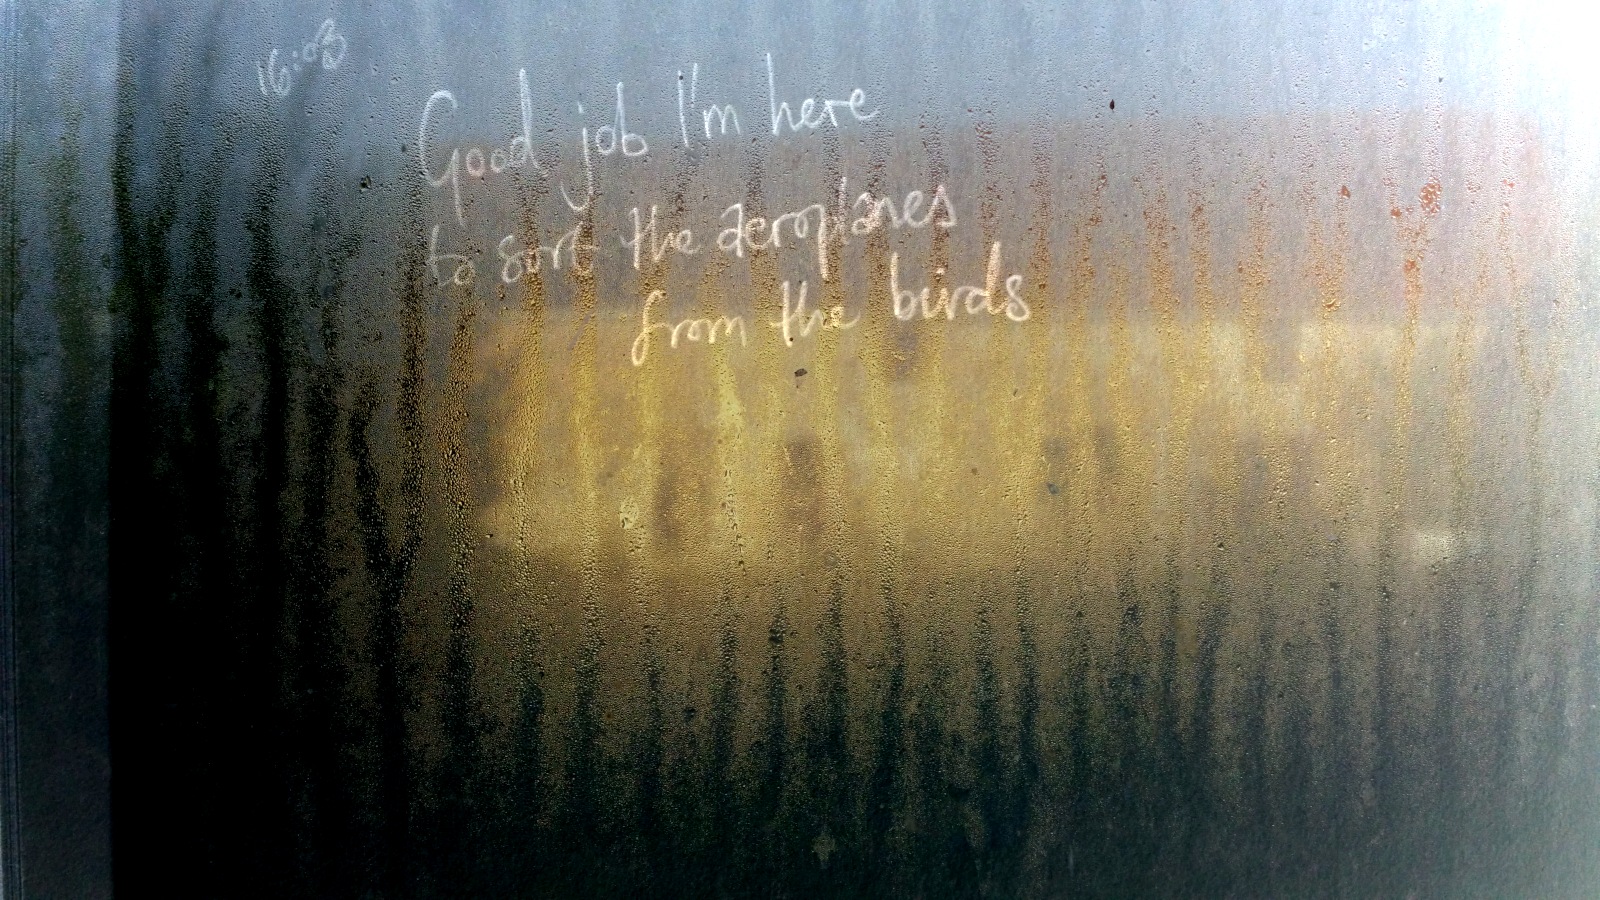 16:03
Good job I'm here
to sort the aeroplanes
from the birds